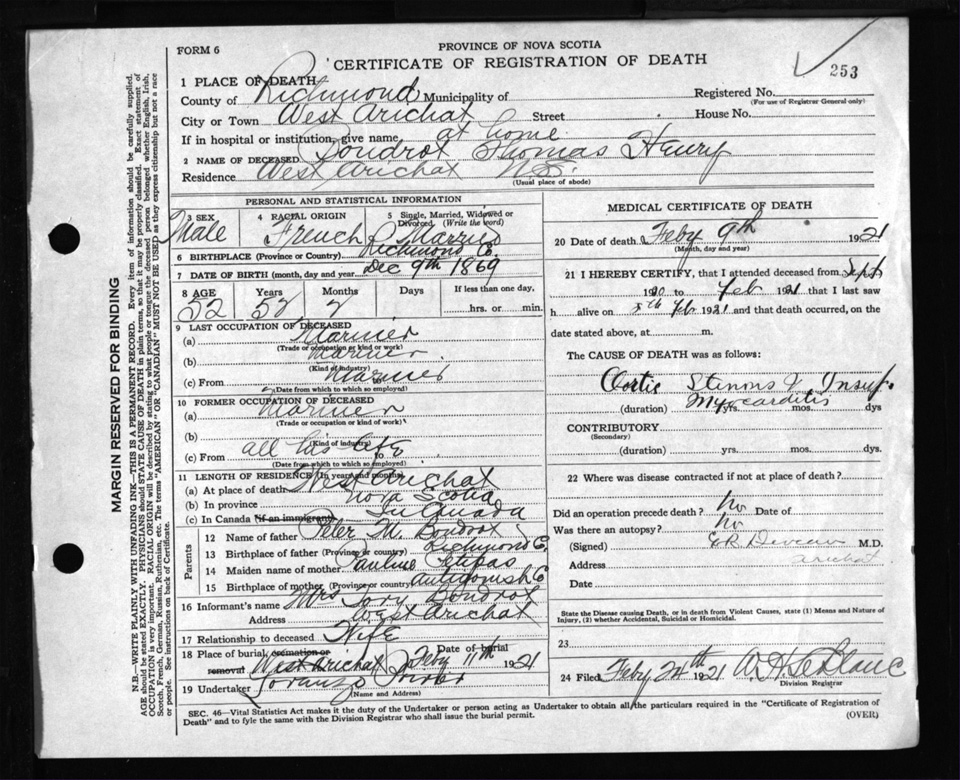 FORM 6
PROVINCE OF NOVA SCOTIA
CERTIFICATE OF REGISTRATION OF DEATH
253
1 PLACE OF DEATH
County of Richmond Municipality of
Registered No.
(For use of Registrar General only)
City or Town West Arichat Street House No.
If in hospital or institution, give name at home
2 NAME OF DECEASED Boudrot Thomas Henry
Residence West Arichat N.S.
(Usual place of abode)
PERSONAL AND STATISTICAL INFORMATION
3 SEX Male
4 RACIAL ORIGIN French
5 Single, Married, Widowed or Divorced (Write the word) Married
6 BIRTHPLACE (Province or Country) Richmond Co.
7 DATE OF BIRTH (month, day and year) Dec 9th 1869
8 AGE Years Months Days If less than one day,
52 52 2 hrs. or min.
9 LAST OCCUPATION OF DECEASED
(a) Mariner
(Trade or occupation or kind of work)
(b) Mariner
(Kind of industry)
(c) From Mariner to
(Date from which to which so employed)
10 FORMER OCCUPATION OF DECEASED
(a) Mariner
(Trade or occupation or kind of work)
(b)
(Kind of industry)
(c) From all his life to
(Date from which to which so employed)
11 LENGTH OF RESIDENCE (In years and months)
(a) At place of death West Arichat
(b) In province Nova Scotia
(c) In Canada (if an immigrant) In Canada
Parents
12 Name of father Peter M. Boudrot
13 Birthplace of father (Province or country) Richmond Co.
14 Maiden name of mother Pauline Petipas
15 Birthplace of mother (Province or country) Antigonish Co
16 Informant's name Mrs Boudrot
Address West Arichat
17 Relationship to deceased Wife
18 Place of burial cremation or removal West Arichat
Date of burial Feby 11th 1921
19 Undertaker
(Name and Address)
MEDICAL CERTIFICATE OF DEATH
20 Date of death Feby 9th 1921
(Month, day and year)
21 I HEREBY CERTIFY, that I attended deceased from Sept
1920 to Feb 1921 that I last saw
h alive on 5th Feb 1921 and that death occurred, on the
date stated above, at m.
The CAUSE OF DEATH was as follows:
Aortic Stenosis & Insuf.
Myocarditis
(duration) yrs. mos. dys
CONTRIBUTORY
(Secondary)
(duration) yrs. mos. dys.
22 Where was disease contracted if not at place of death?
Did an operation precede death? No Date of
Was there an autopsy? No
(Signed) M.D.
Address Arichat
Date
State the Disease causing Death, or in death from Violent Causes, state (1) Means and Nature of
Injury, (2) whether Accidental, Suicidal or Homicidal.
23
24 Filed Feby 24th 1921 LeBlanc
Division Registrar
SEC. 46—Vital Statistics Act makes it the duty of the Undertaker or person acting as Undertaker to obtain all the particulars required in the "Certificate of Registration of
Death" and to fyle the same with the Division Registrar who shall issue the burial permit.
(OVER)
MARGIN RESERVED FOR BINDING
N.B.—WRITE PLAINLY WITH UNFADING INK—THIS IS A PERMANENT RECORD. Every item of information should be carefully supplied.
AGE should be stated EXACTLY. PHYSICIANS should STATE CAUSE OF DEATH in plain terms, so that it may be properly classified. Exact statement of
OCCUPATION is very important. RACIAL ORIGIN will be described by stating to what people or tongue the deceased person belonged whether English, Irish,
Scotch, French, German, Russian, Ruthenian, etc. The terms "AMERICAN" OR "CANADIAN" MUST NOT BE USED as they express citizenship but not a race
or people. See instructions on back of Certificate.